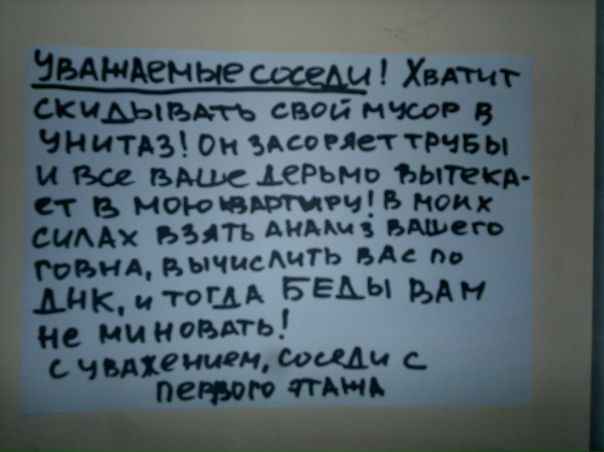 Уважаемые соседи! Хватит
скидывать свой мусор в
унитаз! Он засоряет трубы
и все ваше дерьмо вытека-
ет в мою квартиру! В моих
силах взять анализ вашего
говна, вычислить вас по
ДНК, и тогда БЕДЫ вам
не миновать!
С уважением, соседи с
первого этажа